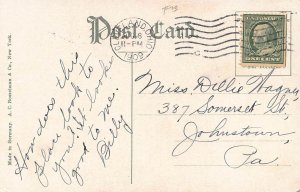 Post Card.
CLEVELAND, OHIO
11-PM
1909
ONE CENT
Made in Germany. A. C. Bosselman & Co., New York.
How does this
place look to
you? It looks
good to me.
Billy
Miss Dillie Wagner
387 Somerset St,
Johnstown
Pa.